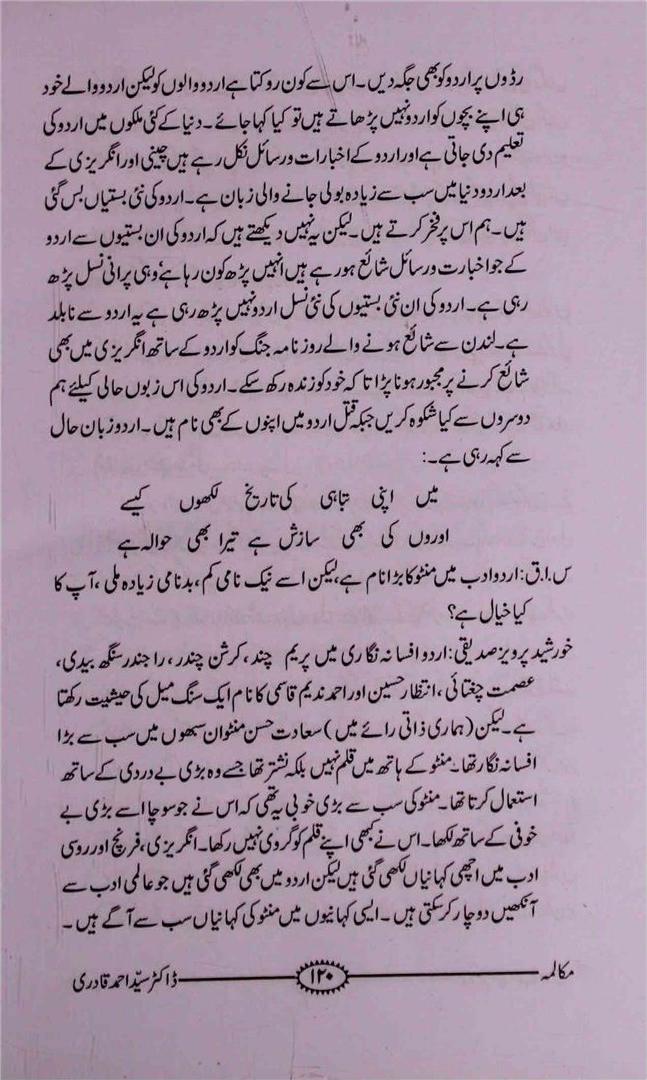 رڈوں پر اردو کو بھی جگہ دیں۔ اس سے کون روکتا ہے اردو والوں کو لیکن اردو والے خود
ہی اپنے بچوں کو اردو نہیں پڑھاتے ہیں تو کیا کہا جائے۔ دنیا کے کئی ملکوں میں اردو کی
تعلیم دی جاتی ہے اور اردو کے اخبارات و رسائل نکل رہے ہیں چینی اور انگریزی کے
بعد اردو دنیا میں سب سے زیادہ بولی جانے والی زبان ہے۔ اردو کی نئی بستیاں بس گئی
ہیں۔ ہم اس پر فخر کرتے ہیں۔ لیکن یہ نہیں دیکھتے ہیں کہ اردو کی ان بستیوں سے اردو
کے جو اخبارت و رسائل شائع ہو رہے ہیں انہیں پڑھ کون رہا ہے، وہی پرانی نسل پڑھ
رہی ہے۔ اردو کی ان نئی بستیوں کی نئی نسل اردو نہیں پڑھ رہی ہے یہ اردو سے نابلد
ہے۔ لندن سے شائع ہونے والے روزنامہ جنگ کو اردو کے ساتھ انگریزی میں بھی
شائع کرنے پر مجبور ہونا پڑا تا کہ خود کو زندہ رکھ سکے۔ اردو کی اس زبوں حالی کیلئے ہم
دوسروں سے کیا شکوہ کریں جبکہ قتل اردو میں اپنوں کے بھی نام ہیں۔ اردو زبان حال
سے کہہ رہی ہے۔:
میں اپنی تباہی کی تاریخ لکھوں کیسے
اوروں کی بھی سازش ہے تیرا بھی حوالہ ہے
س۔ا۔ق: اردو ادب میں منٹو کا بڑا نام ہے، لیکن اسے نیک نامی کم، بدنامی زیادہ ملی، آپ کا
کیا خیال ہے؟
خورشید پرویز صدیقی: اردو افسانہ نگاری میں پریم چند، کرشن چندر، راجندر سنگھ بیدی،
عصمت چغتائی، انتظار حسین اور احمد ندیم قاسمی کا نام ایک سنگ میل کی حیثیت رکھتا
ہے۔ لیکن (ہماری ذاتی رائے میں) سعادت حسن منٹو ان سبھوں میں سب سے بڑا
افسانہ نگار تھا۔ منٹو کے ہاتھ میں قلم نہیں بلکہ نشتر تھا جسے وہ بڑی بے دردی کے ساتھ
استعمال کرتا تھا۔ منٹو کی سب سے بڑی خوبی یہ تھی کہ اس نے جو سوچا اسے بڑی بے
خوفی کے ساتھ لکھا۔ اس نے کبھی اپنے قلم کو گروی نہیں رکھا۔ انگریزی، فرنچ اور روسی
ادب میں اچھی کہانیاں لکھی گئی ہیں لیکن اردو میں بھی لکھی گئی ہیں جو عالمی ادب سے
آنکھیں دوچار کر سکتی ہیں۔ ایسی کہانیوں میں منٹو کی کہانیاں سب سے آگے ہیں۔
مکالمہ ۱۲۰ ڈاکٹر سیّد احمد قادری